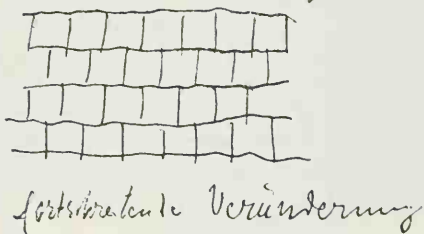 fortschreitende Veränderung